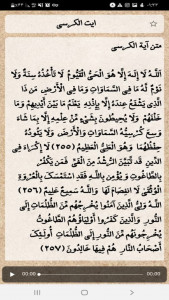 ایت الکرسی
متن آیة الکرسی
اَللَّـهُ لَا إِلَـٰهَ إِلَّا هُوَ الْحَيُّ الْقَيُّومُ لَا تَأْخُذُهُ سِنَةٌ وَلَا
نَوْمٌ لَّهُ مَا فِي السَّمَاوَاتِ وَمَا فِي الْأَرْضِ مَن ذَا
الَّذِي يَشْفَعُ عِندَهُ إِلَّا بِإِذْنِهِ يَعْلَمُ مَا بَيْنَ أَيْدِيهِمْ وَمَا
خَلْفَهُمْ وَلَا يُحِيطُونَ بِشَيْءٍ مِّنْ عِلْمِهِ إِلَّا بِمَا شَاءَ
وَسِعَ كُرْسِيُّهُ السَّمَاوَاتِ وَالْأَرْضَ وَلَا يَئُودُهُ
حِفْظُهُمَا وَهُوَ الْعَلِيُّ الْعَظِيمُ (٢٥٥) لَا إِكْرَاهَ فِي
الدِّينِ قَد تَّبَيَّنَ الرُّشْدُ مِنَ الْغَيِّ فَمَن يَكْفُرْ
بِالطَّاغُوتِ وَيُؤْمِن بِاللَّـهِ فَقَدِ اسْتَمْسَكَ بِالْعُرْوَةِ
الْوُثْقَىٰ لَا انفِصَامَ لَهَا وَاللَّـهُ سَمِيعٌ عَلِيمٌ (٢٥٦)
اللَّـهُ وَلِيُّ الَّذِينَ آمَنُوا يُخْرِجُهُم مِّنَ الظُّلُمَاتِ إِلَى
النُّورِ وَالَّذِينَ كَفَرُوا أَوْلِيَاؤُهُمُ الطَّاغُوتُ
يُخْرِجُونَهُم مِّنَ النُّورِ إِلَى الظُّلُمَاتِ أُولَـٰئِكَ
أَصْحَابُ النَّارِ هُمْ فِيهَا خَالِدُونَ (٢٥٧)
00:00 00:00